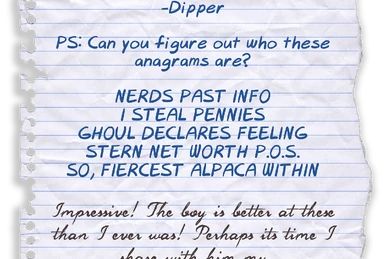 -Dipper
PS: Can you figure out who these
anagrams are?
NERDS PAST INFO
I STEAL PENNIES
GHOUL DECLARES FEELING
STERN NET WORTH P.O.S.
SO, FIERCEST ALPACA WITHIN
Impressive! The boy is better at these
than I ever was! Perhaps its time I
share with him my